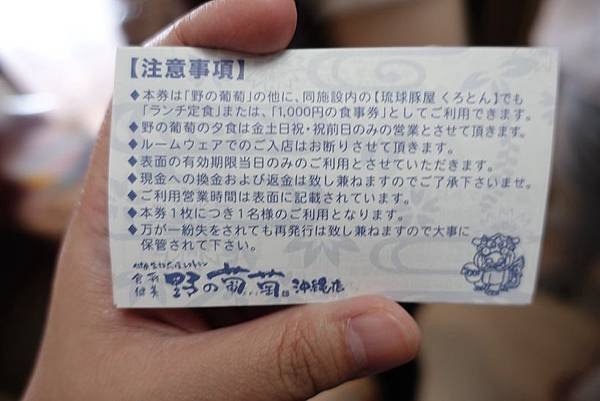 【注意事項】
◆本券は「野の葡萄」の他に、同施設内の【琉球豚屋 くろとん】でも
「ランチ定食」または、「1,000円の食事券」としてご利用できます。
◆野の葡萄の夕食は金土日祝・祝前日のみの営業とさせて頂きます。
◆ルームウェアでのご入店はお断りさせて頂きます。
◆表面の有効期限当日のみのご利用とさせていただきます。
◆現金への換金および返金は致し兼ねますのでご了承下さいませ。
◆ご利用営業時間は表面に記載されています。
◆本券1枚につき1名様のご利用となります。
◆万が一紛失をされても再発行は致し兼ねますので大事に
保管されて下さい。
野の葡萄 沖縄店